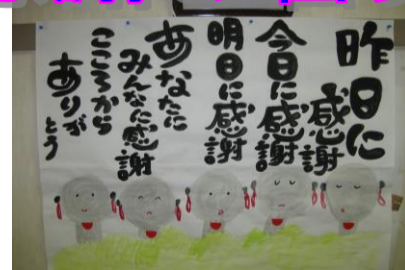 昨日に
感謝
今日に感謝
明日に感謝
あなたに
みんなに感謝
こころから
ありがとう